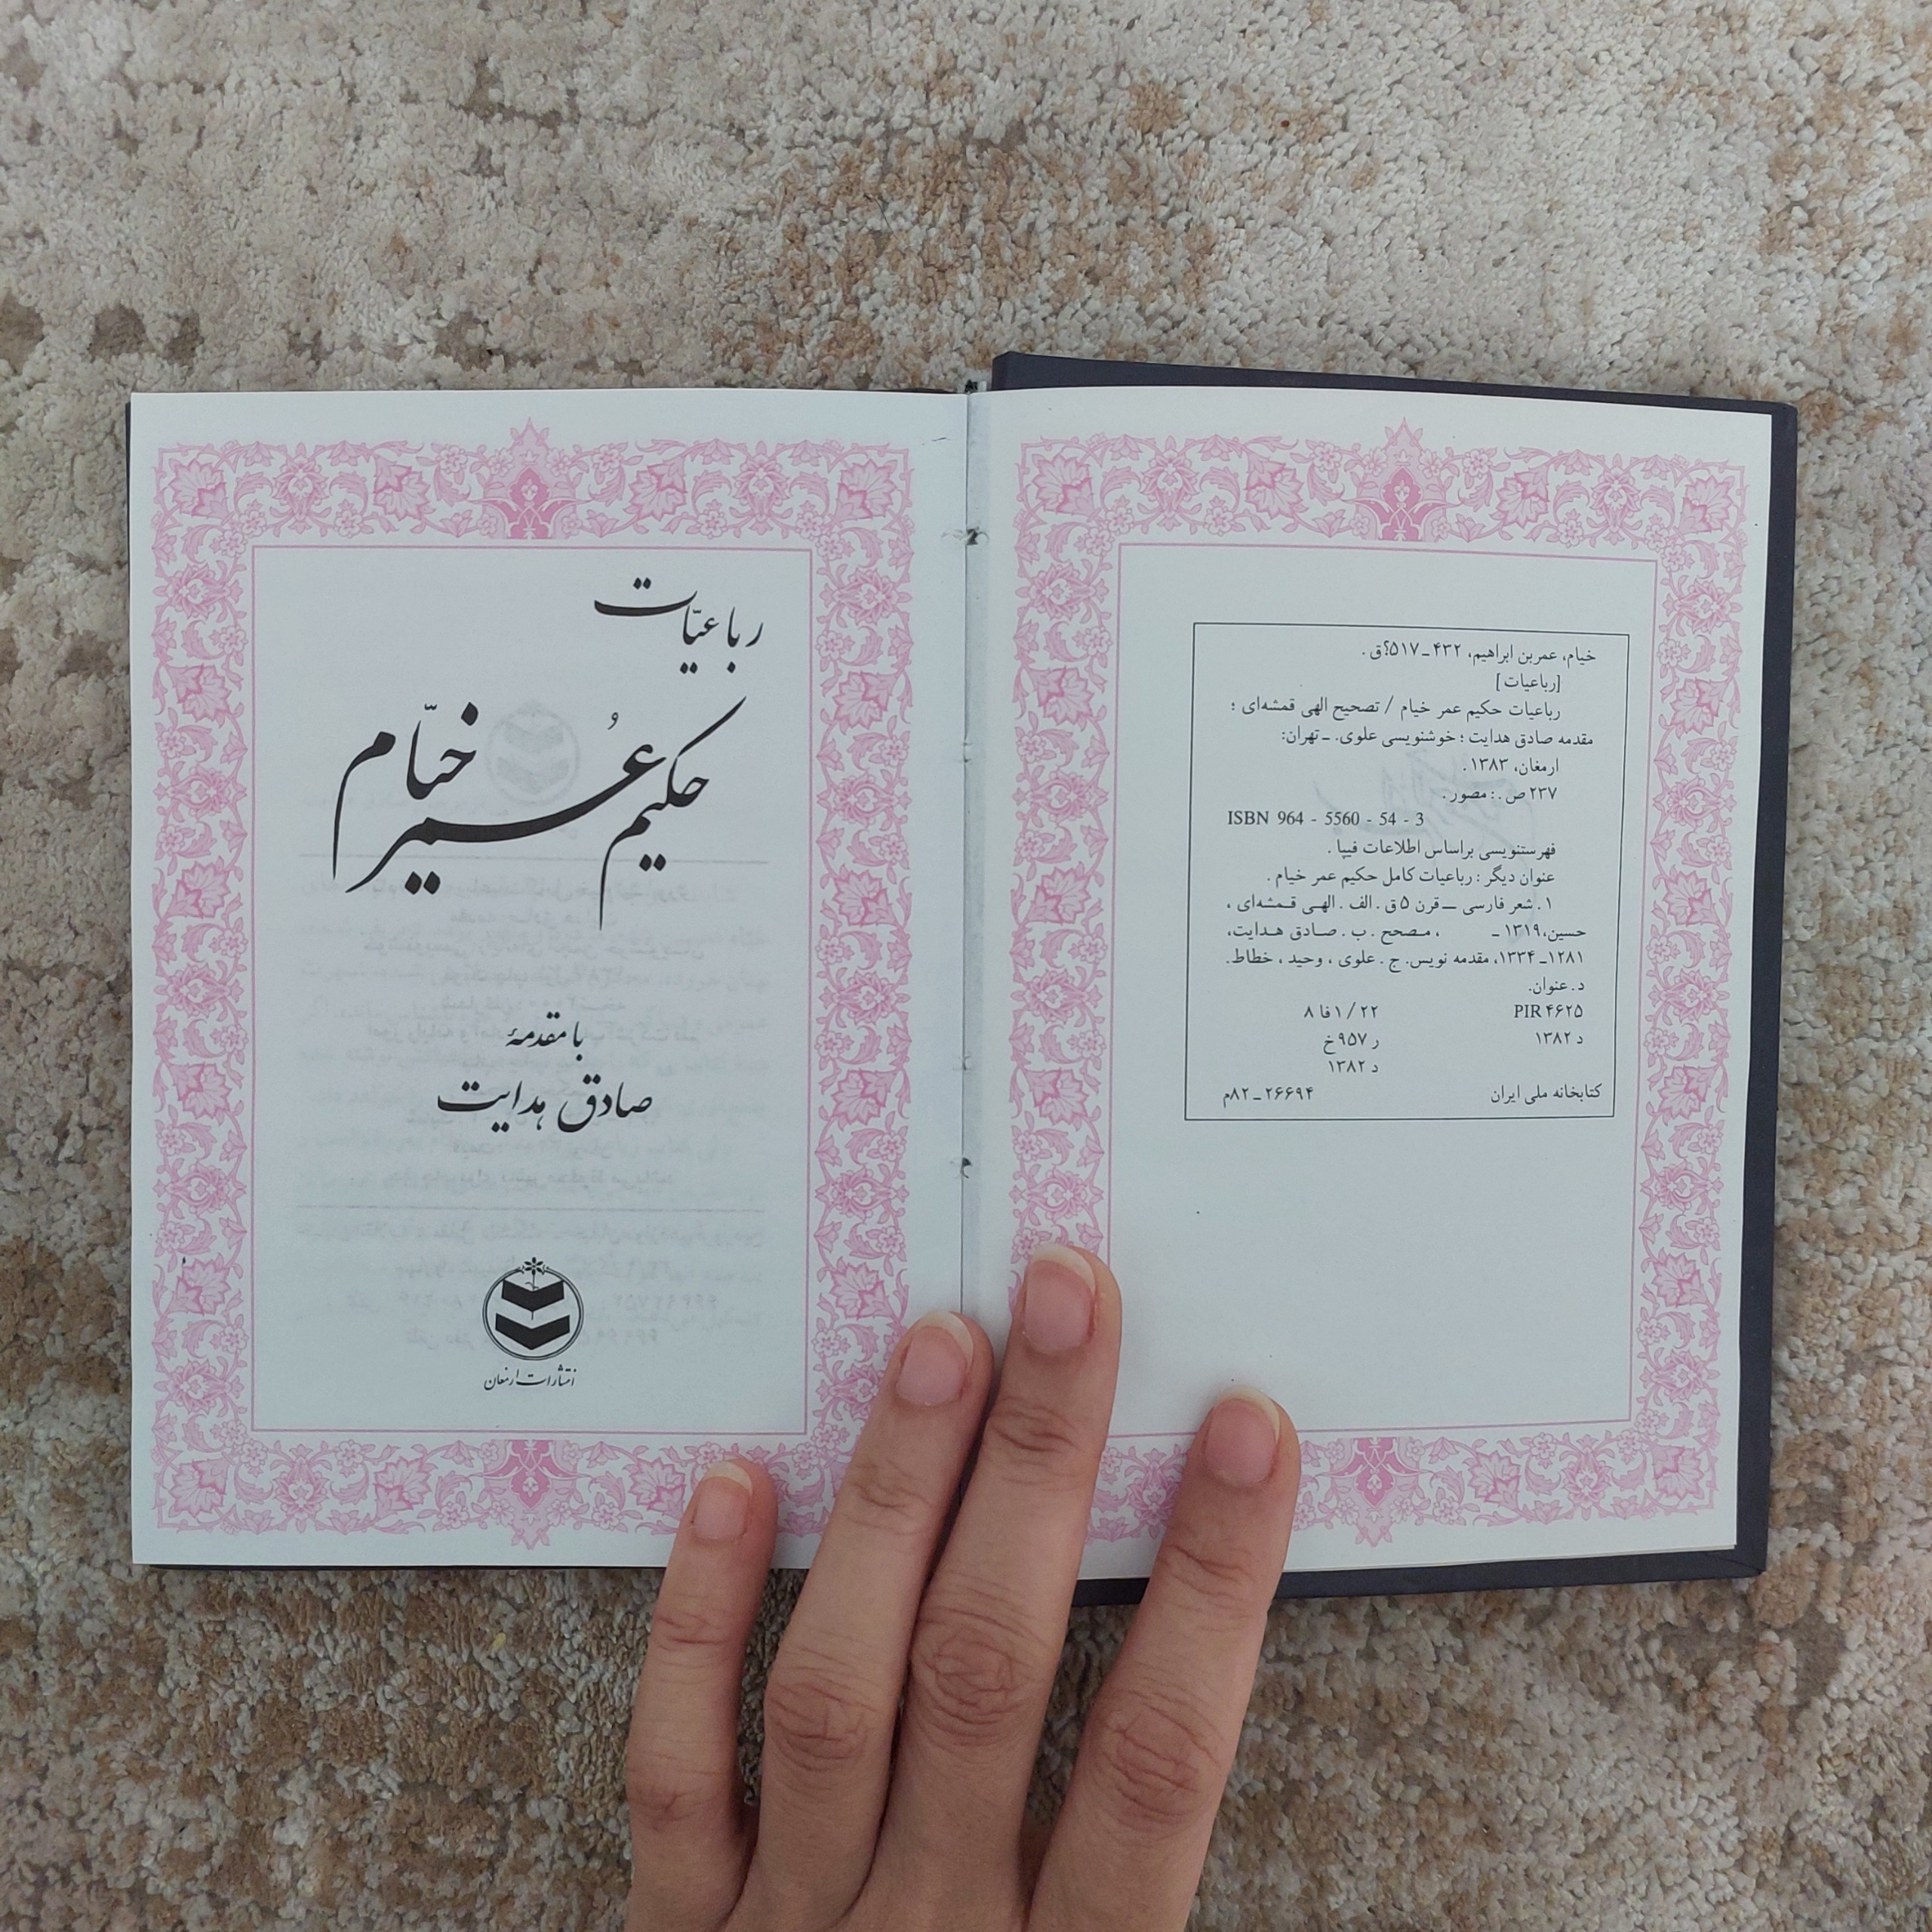 خیام، عمربن ابراهیم، ۴۳۲ـ۵۱۷؟ق.
[رباعیات]
رباعیات حکیم عمر خیام / تصحیح الهی قمشه‌ای ؛
مقدمه صادق هدایت ؛ خوشنویسی علوی. ـ تهران:
ارمغان، ۱۳۸۳.
۲۳۷ ص.: مصور.
ISBN 964 - 5560 - 54 - 3
فهرستنویسی براساس اطلاعات فیپا.
عنوان دیگر : رباعیات کامل حکیم عمر خیام.
۱. شعر فارسی ــ قرن ۵ ق. الف. الهی قمشه‌ای،
حسین، ۱۳۱۹ ـ ، مصحح. ب. صادق هدایت،
۱۲۸۱ـ۱۳۳۴، مقدمه نویس. ج. علوی، وحید، خطاط.
د. عنوان.
PIR ۴۶۲۵ ۸ فا ۱ / ۲۲
د ۱۳۸۲ ر ۹۵۷ خ
د ۱۳۸۲
کتابخانه ملی ایران ۲۶۶۹۴ـ۸۲م
رباعیّات
حکیم عُمر خیّام
با مقدمهٔ
صادق هدایت
انتشارات ارمغان